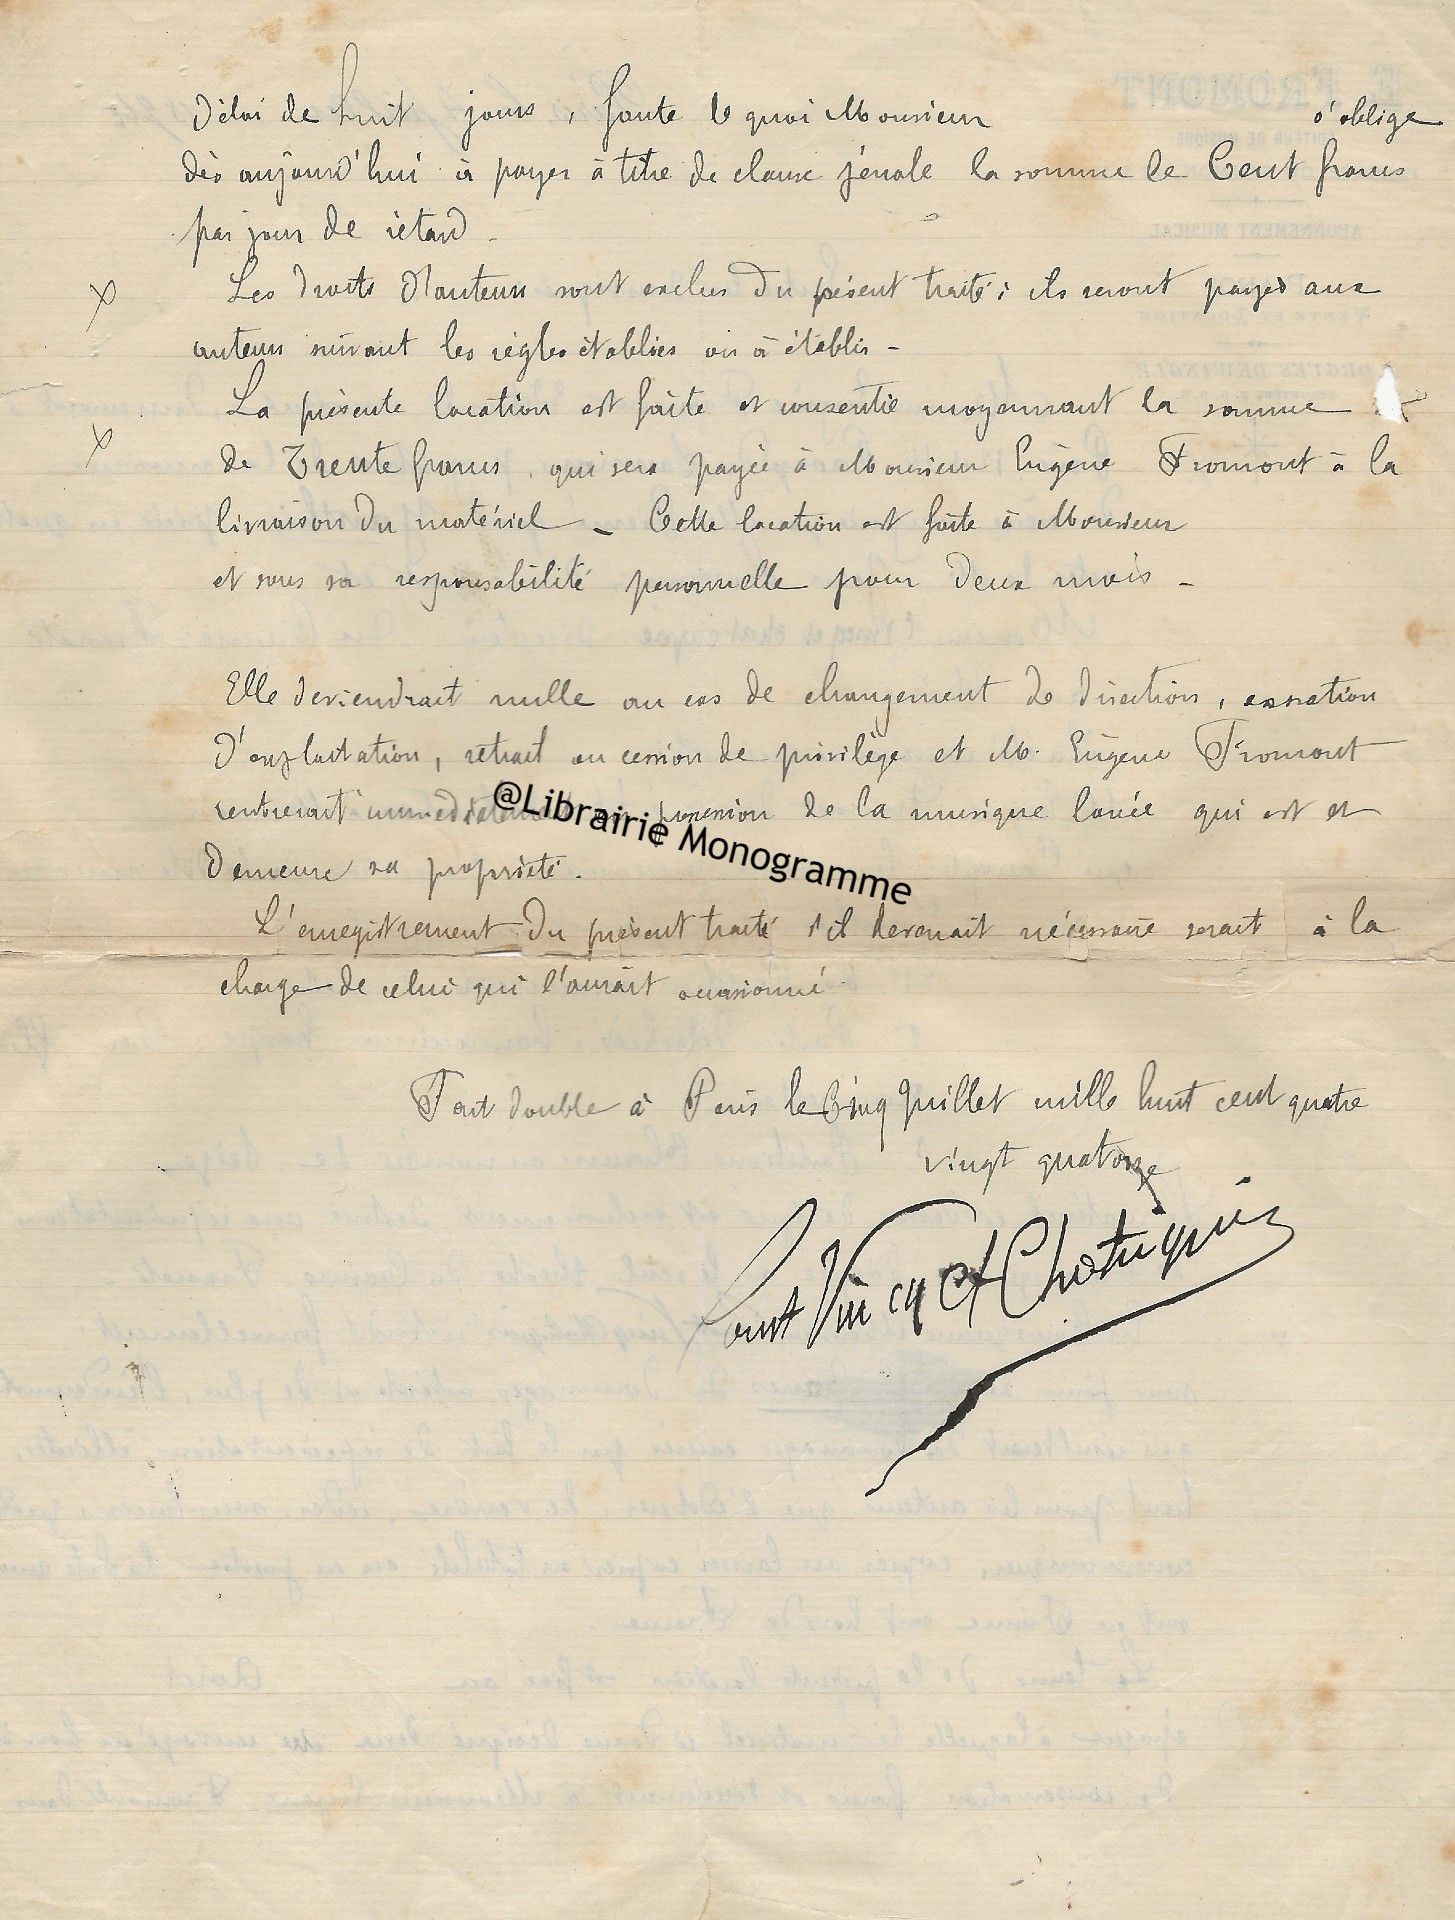 délai de huit jours, faute de quoi Monsieur s'oblige
dès aujourd'hui à payer à titre de clause pénale la somme de Cent francs
par jour de retard _
Les droits d'auteurs sont exclus du présent traité; ils seront payés aux
auteurs suivant les règles établies ou à établir _
La présente location est faite et consentie moyennant la somme
de Trente francs, qui sera payée à Monsieur Eugène Fromont à la
livraison du matériel _ Cette location est faite à Monsieur
et sous sa responsabilité personnelle pour deux mois _
Elle deviendrait nulle au cas de changement de direction, cessation
d'exploitation, retrait ou cession de privilège et M. Eugène Fromont
rentrerait immédiatement possession de la musique louée qui est et
demeure sa propriété.
@Librairie Monogramme
L'enregistrement du présent traité s'il devenait nécessaire serait à la
charge de celui qui l'aurait occasionné
Fait double à Paris le Cinq Juillet mille huit cent quatre
vingt quatorze
Vincy et Chatuquin